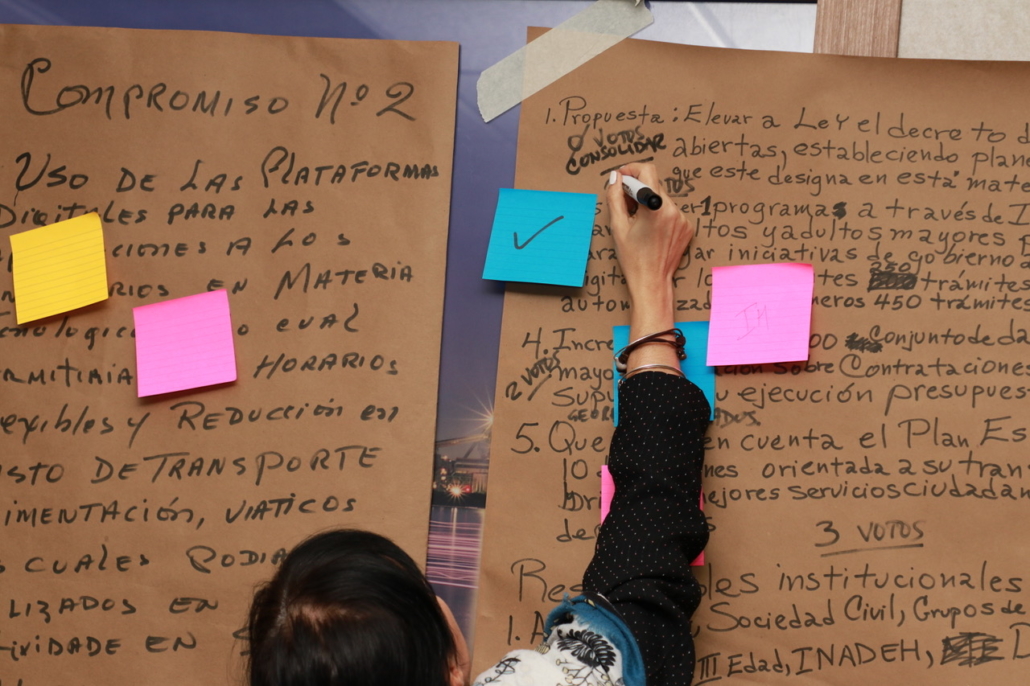 COMPROMISO Nº 2
USO DE LAS PLATAFORMAS
DIGITALES PARA LAS
CIONES A LOS
RIOS EN MATERIA
nologic o cual
RMITIRIA HORARIOS
exibles y REDUCCIÓN en
STO DE TRANSPORTE
IMENTACIÓN, VIATICOS
S CUALES PODIA
LIZADOS EN
IVIDADE EN
1. Propuesta: Elevar a Ley el decreto d
0 VOTOS
CONSOLIDAR abiertas, estableciendo plane
que este designa en esta mate
er 1 programas a través de I
ltos y adultos mayores p
gar iniciativas de gobierno a
digit ar lo tes 250 trámites
autom zad neros 450 trámites
4. Incre 00 Conjunto de da
2 VOTOS
mayo ción sobre Contrataciones
Supu u ejecución presupues
5. Que en cuenta el Plan Es
10 nes orientada a su tran
bri ejores servicios ciudadan
de s
3 VOTOS
Res les institucionales
1. A , Sociedad Civil, Grupos de
III Edad, INADEH,